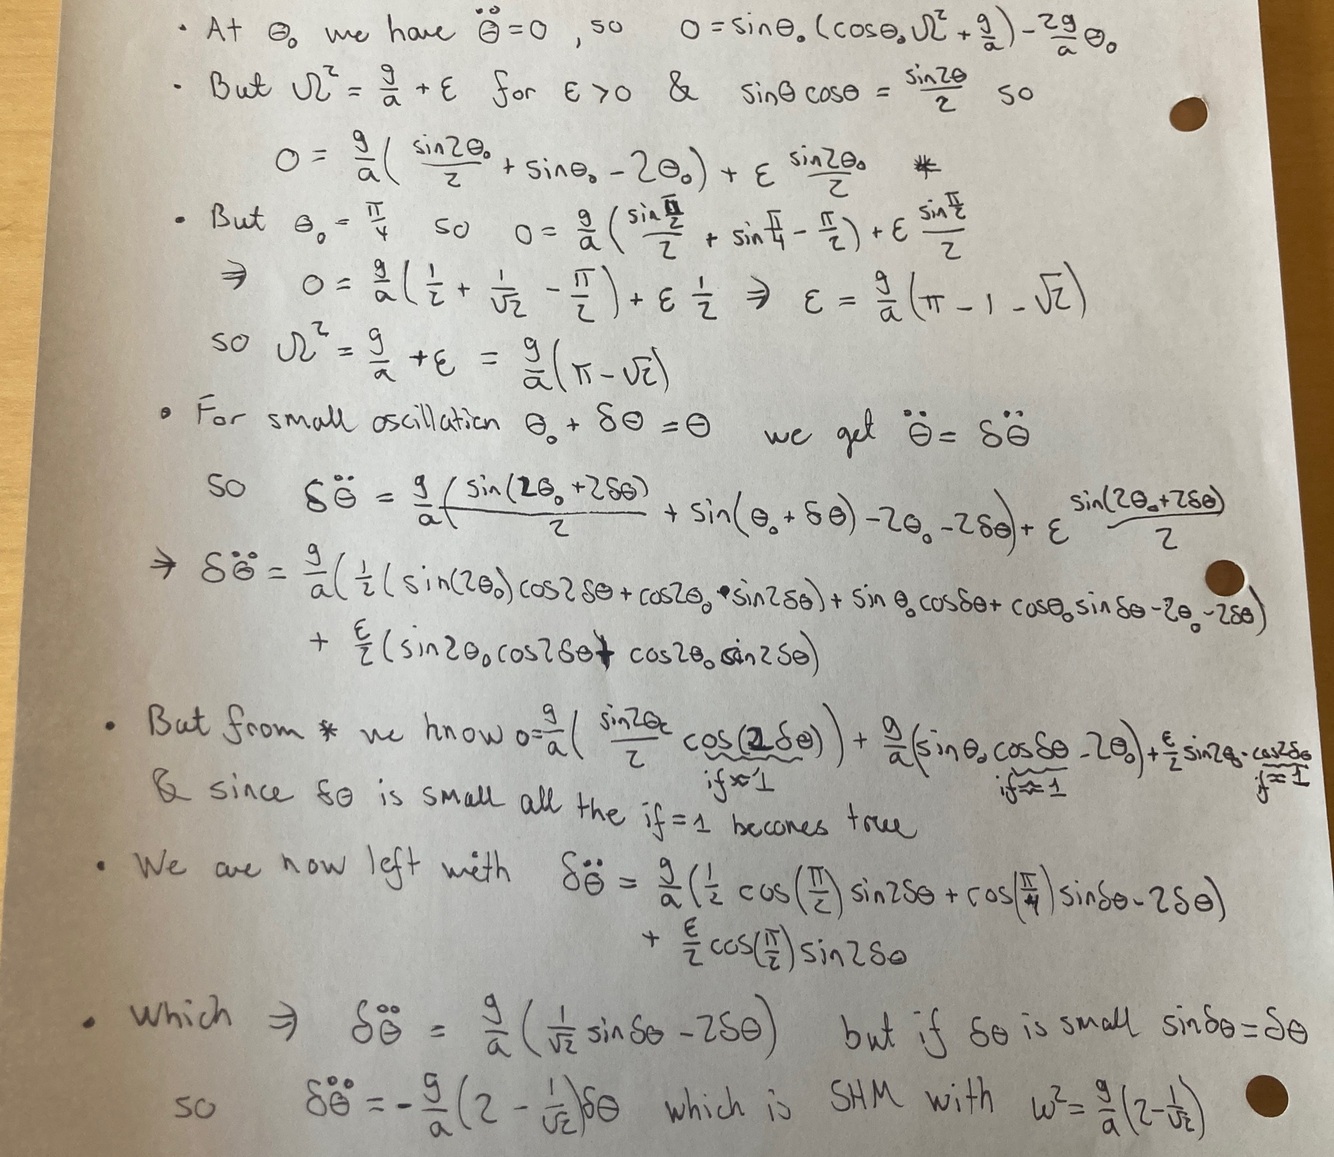 • At θ₀ we have θ̈=0, so 0 = sinθ₀(cosθ₀Ω² + g/a) - 2g/a θ₀
• But Ω² = g/a + ε for ε>0 & sinθcosθ = sin2θ/2 so
0 = g/a( sin2θ₀/2 + sinθ₀ - 2θ₀) + ε sin2θ₀/2 *
• But θ₀ = π/4 so 0 = g/a( sin π/2/2 + sin π/4 - π/2) + ε sin π/2/2
⇒ 0 = g/a( 1/2 + 1/√2 - π/2) + ε 1/2 ⇒ ε = g/a(π - 1 - √2)
so Ω² = g/a + ε = g/a(π-√2)
• For small oscillation θ₀ + δθ = θ we get θ̈ = δθ̈
so δθ̈ = g/a( sin(2θ₀+2δθ)/2 + sin(θ₀+δθ) - 2θ₀ - 2δθ) + ε sin(2θ₀+2δθ)/2
⇒ δθ̈ = g/a( 1/2( sin(2θ₀)cos2δθ + cos2θ₀•sin2δθ) + sinθ₀cosδθ + cosθ₀sinδθ - 2θ₀ - 2δθ)
+ ε/2(sin2θ₀cos2δθ + cos2θ₀ sin2δθ)
• But from * we know 0=g/a( sin2θ₀/2 cos(2δθ)) + g/a(sinθ₀cosδθ - 2θ₀) + ε/2 sin2θ₀·cos2δθ
if≈1 if≈1 if≈1
& since δθ is small all the if=1 becomes true
• We are now left with δθ̈ = g/a( 1/2 cos(π/2) sin2δθ + cos(π/4)sinδθ - 2δθ)
+ ε/2 cos(π/2) sin2δθ
• Which ⇒ δθ̈ = g/a( 1/√2 sinδθ - 2δθ) but if δθ is small sinδθ=δθ
so δθ̈ = -g/a(2 - 1/√2)δθ which is SHM with ω² = g/a(2-1/√2)